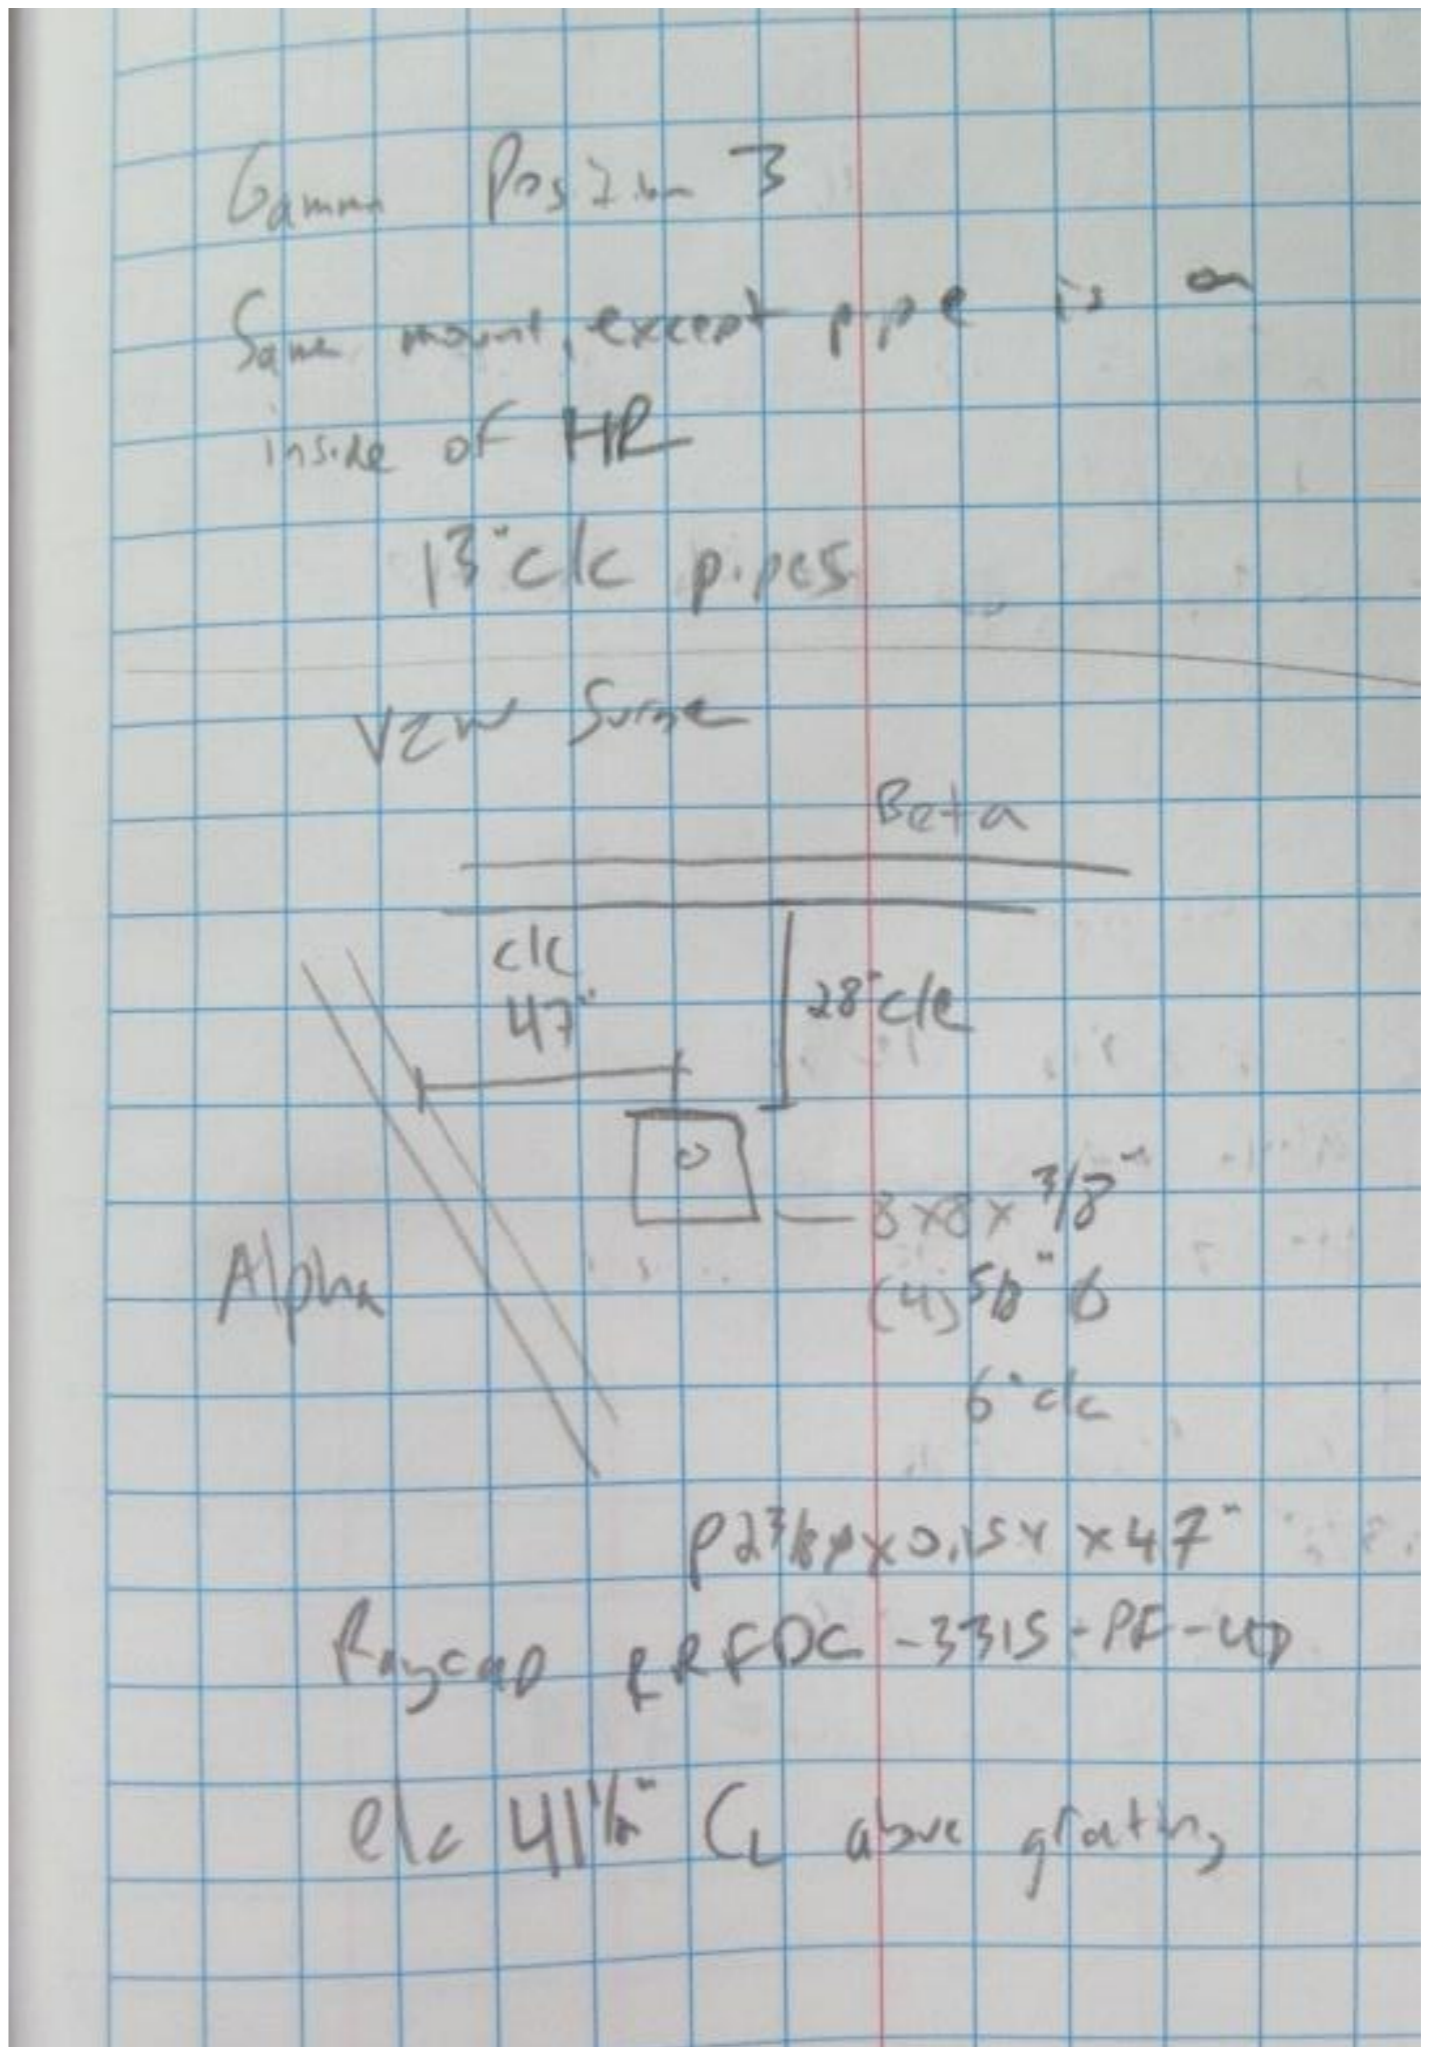 Gamma Position 3
Same mount, except pipe is on
inside of HR
13" c/c pipes
VZW Surge
Beta
c/c
47"
28" c/c
8x8x 3/8"
Alpha
(4) 5/8" ϕ
6" c/c
P2 3/8 ϕ x 0.154 x 47"
Raycap RRFDC-3315-PF-48
41 1/2" CL above grating